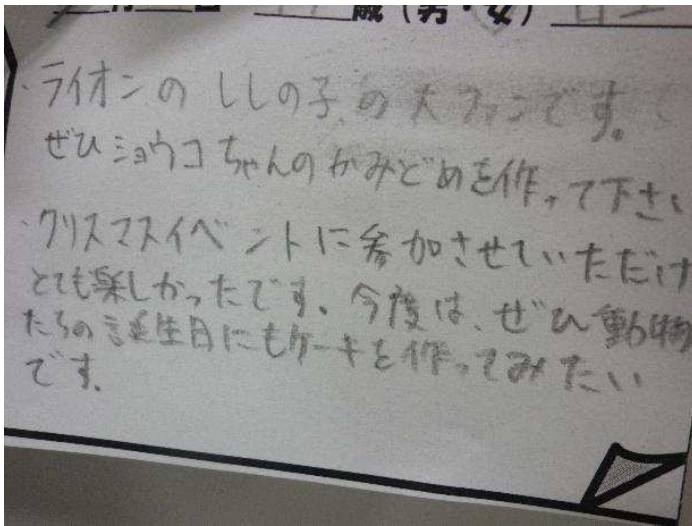 歳(男・女)
・ライオンのししの子の大ファンです。
ぜひショウコちゃんのかみどめを作って下さい
・クリスマスイベントに参加させていただけ
とても楽しかったです。今度は、ぜひ動物
たちの誕生日にもケーキを作ってみたい
です。